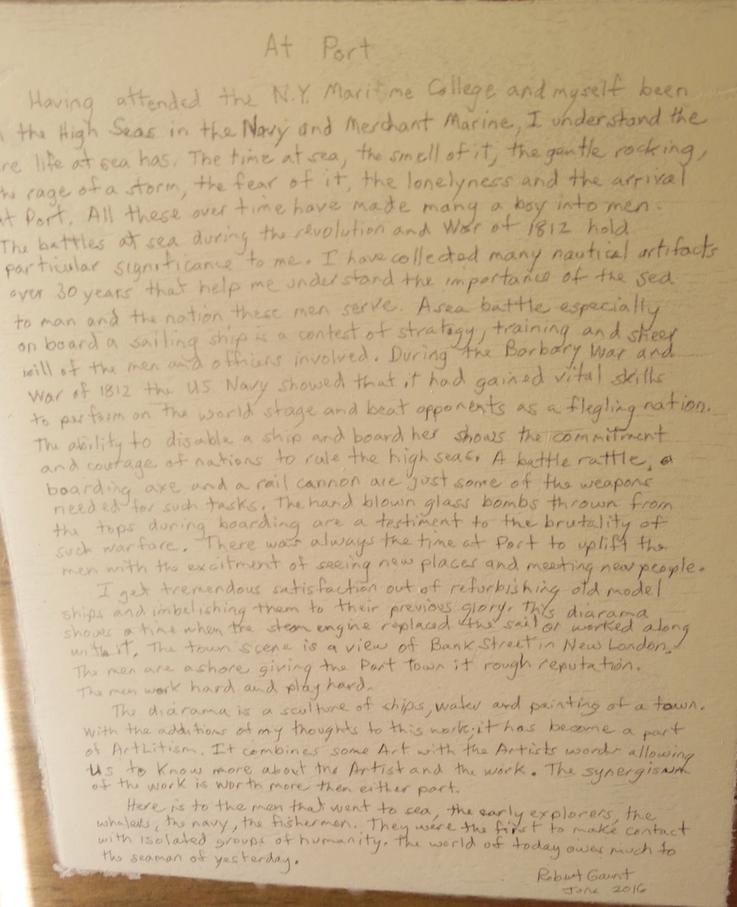 At Port
Having attended the N.Y. Maritime College and myself been
the High Seas in the Navy and Merchant Marine, I understand the
life at sea has. The time at sea, the smell of it, the gentle rocking,
rage of a storm, the fear of it, the lonelyness and the arrival
at Port. All these over time have made many a boy into men.
The battles at sea during the revolution and War of 1812 hold
particular significance to me. I have collected many nautical artifacts
over 30 years that help me understand the importance of the sea
to man and the nation these men serve. A sea battle especially
on board a sailing ship is a contest of strategy, training and sheer
will of the men and officers involved. During the Barbary War and
War of 1812 the US Navy showed that it had gained vital skills
to perform on the world stage and beat opponents as a flegling nation.
The ability to disable a ship and board her shows the commitment
and courage of nations to rule the high seas. A battle rattle, a
boarding axe and a rail cannon are just some of the weapons
needed for such tasks. The hand blown glass bombs thrown from
the tops during boarding are a testiment to the brutality of
such warfare. There was always the time at Port to uplift the
men with the excitment of seeing new places and meeting new people.
I get tremendous satisfaction out of refurbishing old model
ships and imbelishing them to their previous glory. This diarama
shows a time when the steam engine replaced the sail or worked along
with it. The town scene is a view of Bank Street in New London.
The men are ashore giving the Port Town it rough reputation.
The men work hard and play hard.
The diarama is a sculture of ships, water and painting of a town.
With the additions of my thoughts to this work, it has become a part
of ArtLitism. It combines some Art with the Artists words allowing
us to know more about the Artist and the work. The synergism
of the work is worth more then either part.
Here is to the men that went to sea, the early explorers, the
whalers, the navy, the fishermen. They were the first to make contact
with isolated groups of humanity. The world of today owes much to
the seaman of yesterday.
Robert Gaunt
June 2016